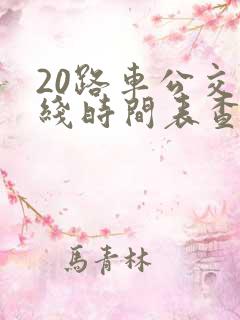 20路車公交
綫時間表查
馬青林